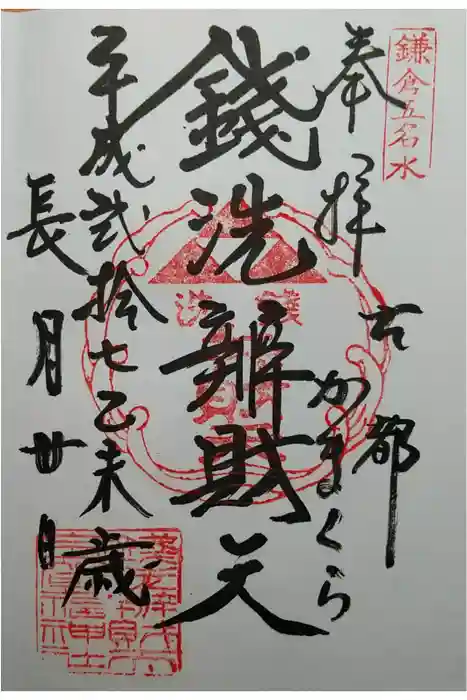 鎌倉五名水
奉拝
古都
かまくら
銭洗辨財天
平成弐拾七乙未歳
長月廿日
銭洗